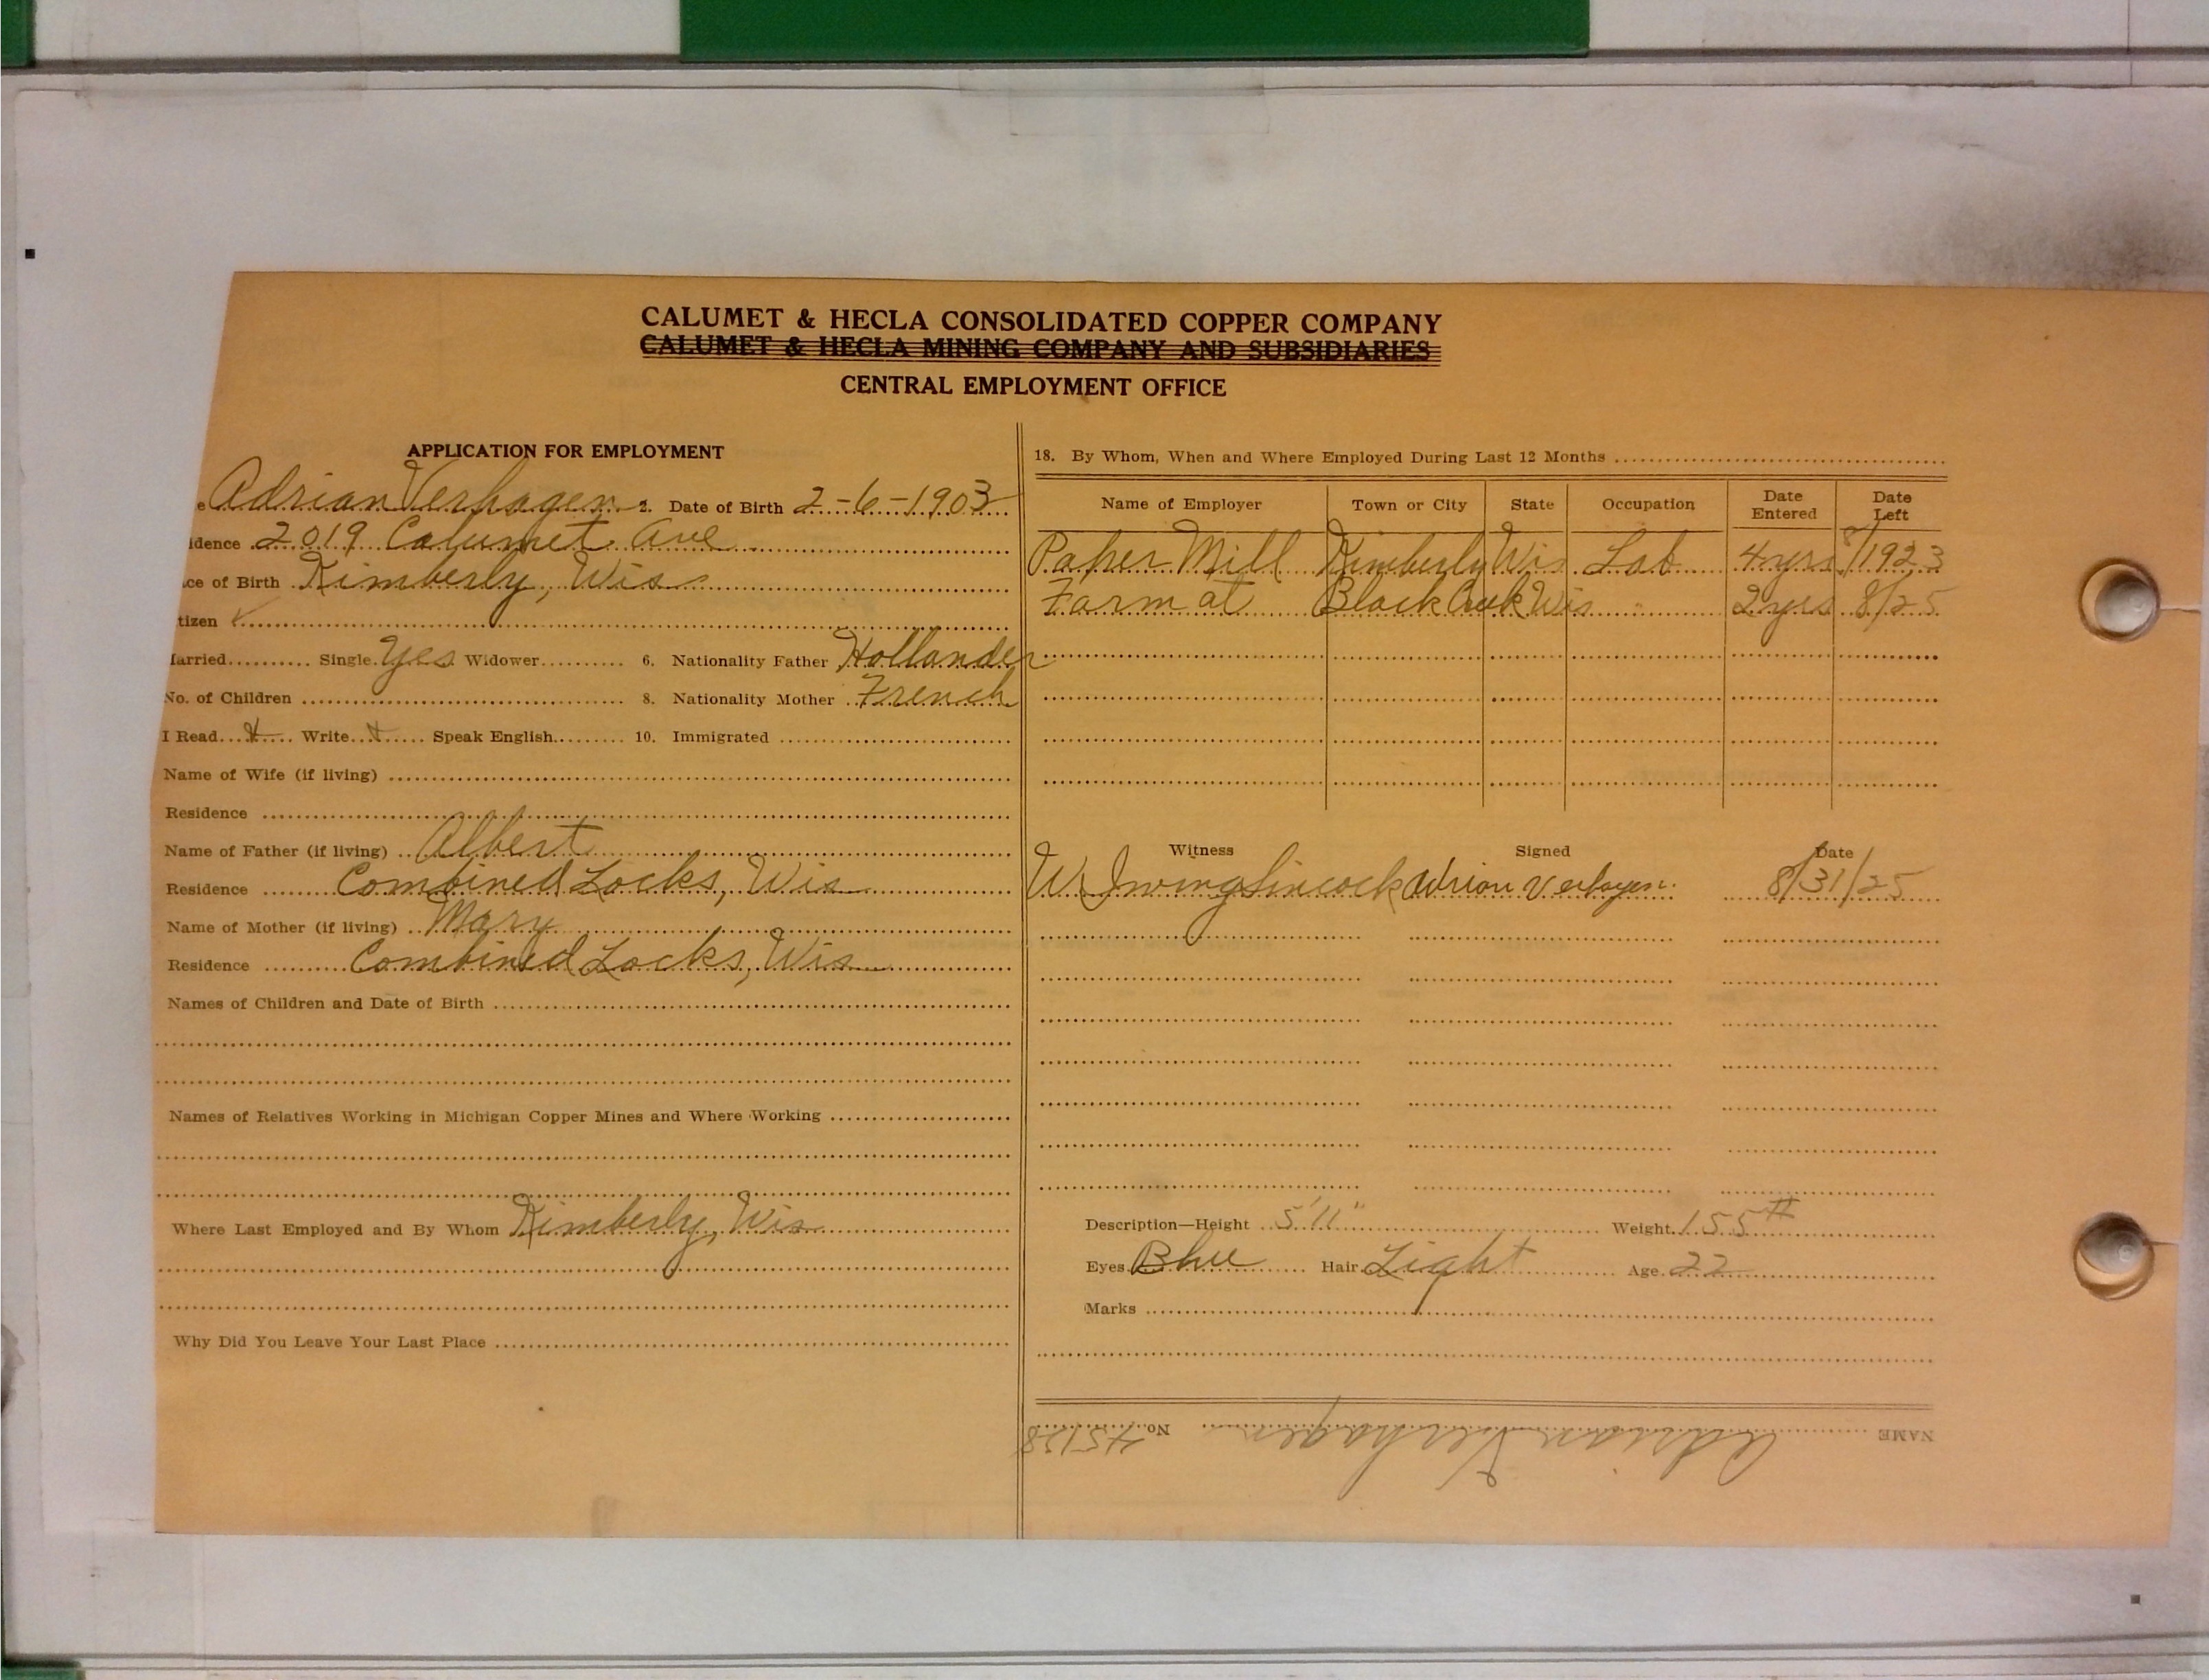 CALUMET & HECLA CONSOLIDATED COPPER COMPANY
CALUMET & HECLA MINING COMPANY AND SUBSIDIARIES
CENTRAL EMPLOYMENT OFFICE
APPLICATION FOR EMPLOYMENT
e Adrian Verhagen 2. Date of Birth 2-6-1903
idence 2019 Calumet Ave
ce of Birth Kimberly, Wis
tizen ✓
arried Single Yes Widower 6. Nationality Father Hollander
No. of Children 8. Nationality Mother French
I Read Write Speak English 10. Immigrated
Name of Wife (if living)
Residence
Name of Father (if living) Albert
Residence Combined Locks, Wis
Name of Mother (if living) Mary
Residence Combined Locks, Wis
Names of Children and Date of Birth
Names of Relatives Working in Michigan Copper Mines and Where Working
Where Last Employed and By Whom Kimberly, Wis
Why Did You Leave Your Last Place
18. By Whom, When and Where Employed During Last 12 Months
Name of Employer Town or City State Occupation Date Entered Date Left
Paper Mill Kimberly Wis Lab 4 yrs 8/1923
Farm at Black Creek Wis " 2 yrs 8/25
Witness Signed Date
W Irving Sincock Adrian Verhagen 8/31/25
Description—Height 5'11" Weight 155#
Eyes Blue Hair Light Age 22
Marks
NAME Adrian Verhagen No. 45128